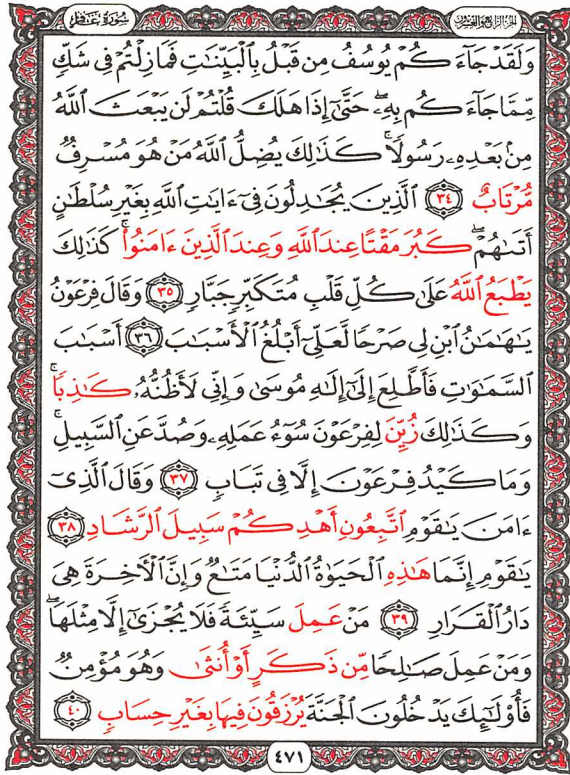 سورة غافر
الجزء الرابع والعشرون
وَلَقَدْ جَآءَكُمْ يُوسُفُ مِن قَبْلُ بِٱلْبَيِّنَٰتِ فَمَا زِلْتُمْ فِى شَكٍّ
مِّمَّا جَآءَكُم بِهِۦۖ حَتَّىٰٓ إِذَا هَلَكَ قُلْتُمْ لَن يَبْعَثَ ٱللَّهُ
مِنۢ بَعْدِهِۦ رَسُولًاۚ كَذَٰلِكَ يُضِلُّ ٱللَّهُ مَنْ هُوَ مُسْرِفٌ
مُّرْتَابٌ ٣٤ ٱلَّذِينَ يُجَٰدِلُونَ فِىٓ ءَايَٰتِ ٱللَّهِ بِغَيْرِ سُلْطَٰنٍ
أَتَىٰهُمْۖ كَبُرَ مَقْتًا عِندَ ٱللَّهِ وَعِندَ ٱلَّذِينَ ءَامَنُوا۟ۚ كَذَٰلِكَ
يَطْبَعُ ٱللَّهُ عَلَىٰ كُلِّ قَلْبِ مُتَكَبِّرٍ جَبَّارٍ ٣٥ وَقَالَ فِرْعَوْنُ
يَٰهَٰمَٰنُ ٱبْنِ لِى صَرْحًا لَّعَلِّىٓ أَبْلُغُ ٱلْأَسْبَٰبَ ٣٦ أَسْبَٰبَ
ٱلسَّمَٰوَٰتِ فَأَطَّلِعَ إِلَىٰٓ إِلَٰهِ مُوسَىٰ وَإِنِّى لَأَظُنُّهُۥ كَٰذِبًاۚ
وَكَذَٰلِكَ زُيِّنَ لِفِرْعَوْنَ سُوٓءُ عَمَلِهِۦ وَصُدَّ عَنِ ٱلسَّبِيلِۚ
وَمَا كَيْدُ فِرْعَوْنَ إِلَّا فِى تَبَابٍ ٣٧ وَقَالَ ٱلَّذِىٓ
ءَامَنَ يَٰقَوْمِ ٱتَّبِعُونِ أَهْدِكُمْ سَبِيلَ ٱلرَّشَادِ ٣٨
يَٰقَوْمِ إِنَّمَا هَٰذِهِ ٱلْحَيَوٰةُ ٱلدُّنْيَا مَتَٰعٌ وَإِنَّ ٱلْءَاخِرَةَ هِىَ
دَارُ ٱلْقَرَارِ ٣٩ مَنْ عَمِلَ سَيِّئَةً فَلَا يُجْزَىٰٓ إِلَّا مِثْلَهَاۖ
وَمَنْ عَمِلَ صَٰلِحًا مِّن ذَكَرٍ أَوْ أُنثَىٰ وَهُوَ مُؤْمِنٌ
فَأُو۟لَٰٓئِكَ يَدْخُلُونَ ٱلْجَنَّةَ يُرْزَقُونَ فِيهَا بِغَيْرِ حِسَابٍ ٤٠
٤٧١